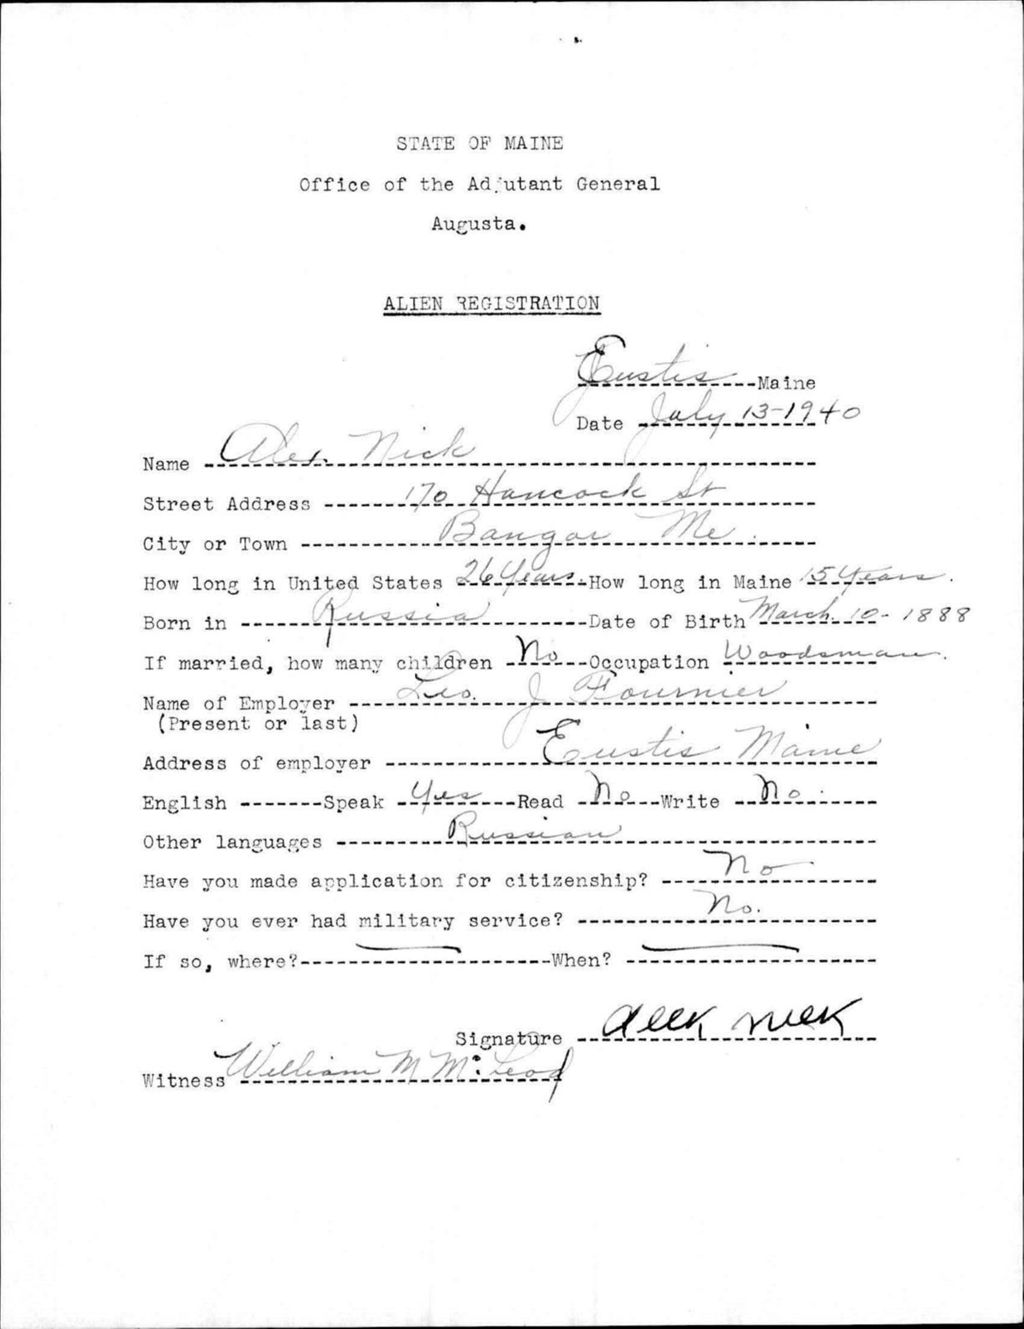 STATE OF MAINE
Office of the Adjutant General
Augusta.
ALIEN REGISTRATION
Eustis Maine
Date July 13-1940
Name Alex. Nick
Street Address 170 Hancock St
City or Town Bangor Me.
How long in United States 26 Years. How long in Maine 15 Years.
Born in Russia Date of Birth March. 10-1888
If married, how many children No Occupation Woodsman.
Name of Employer Leo. J Fournier
(Present or last)
Address of employer Eustis Maine
English Speak Yes Read No Write No.
Other languages Russian
Have you made application for citizenship? No
Have you ever had military service? No.
If so, where? When?
Signature aleek nick
Witness William M McLeod